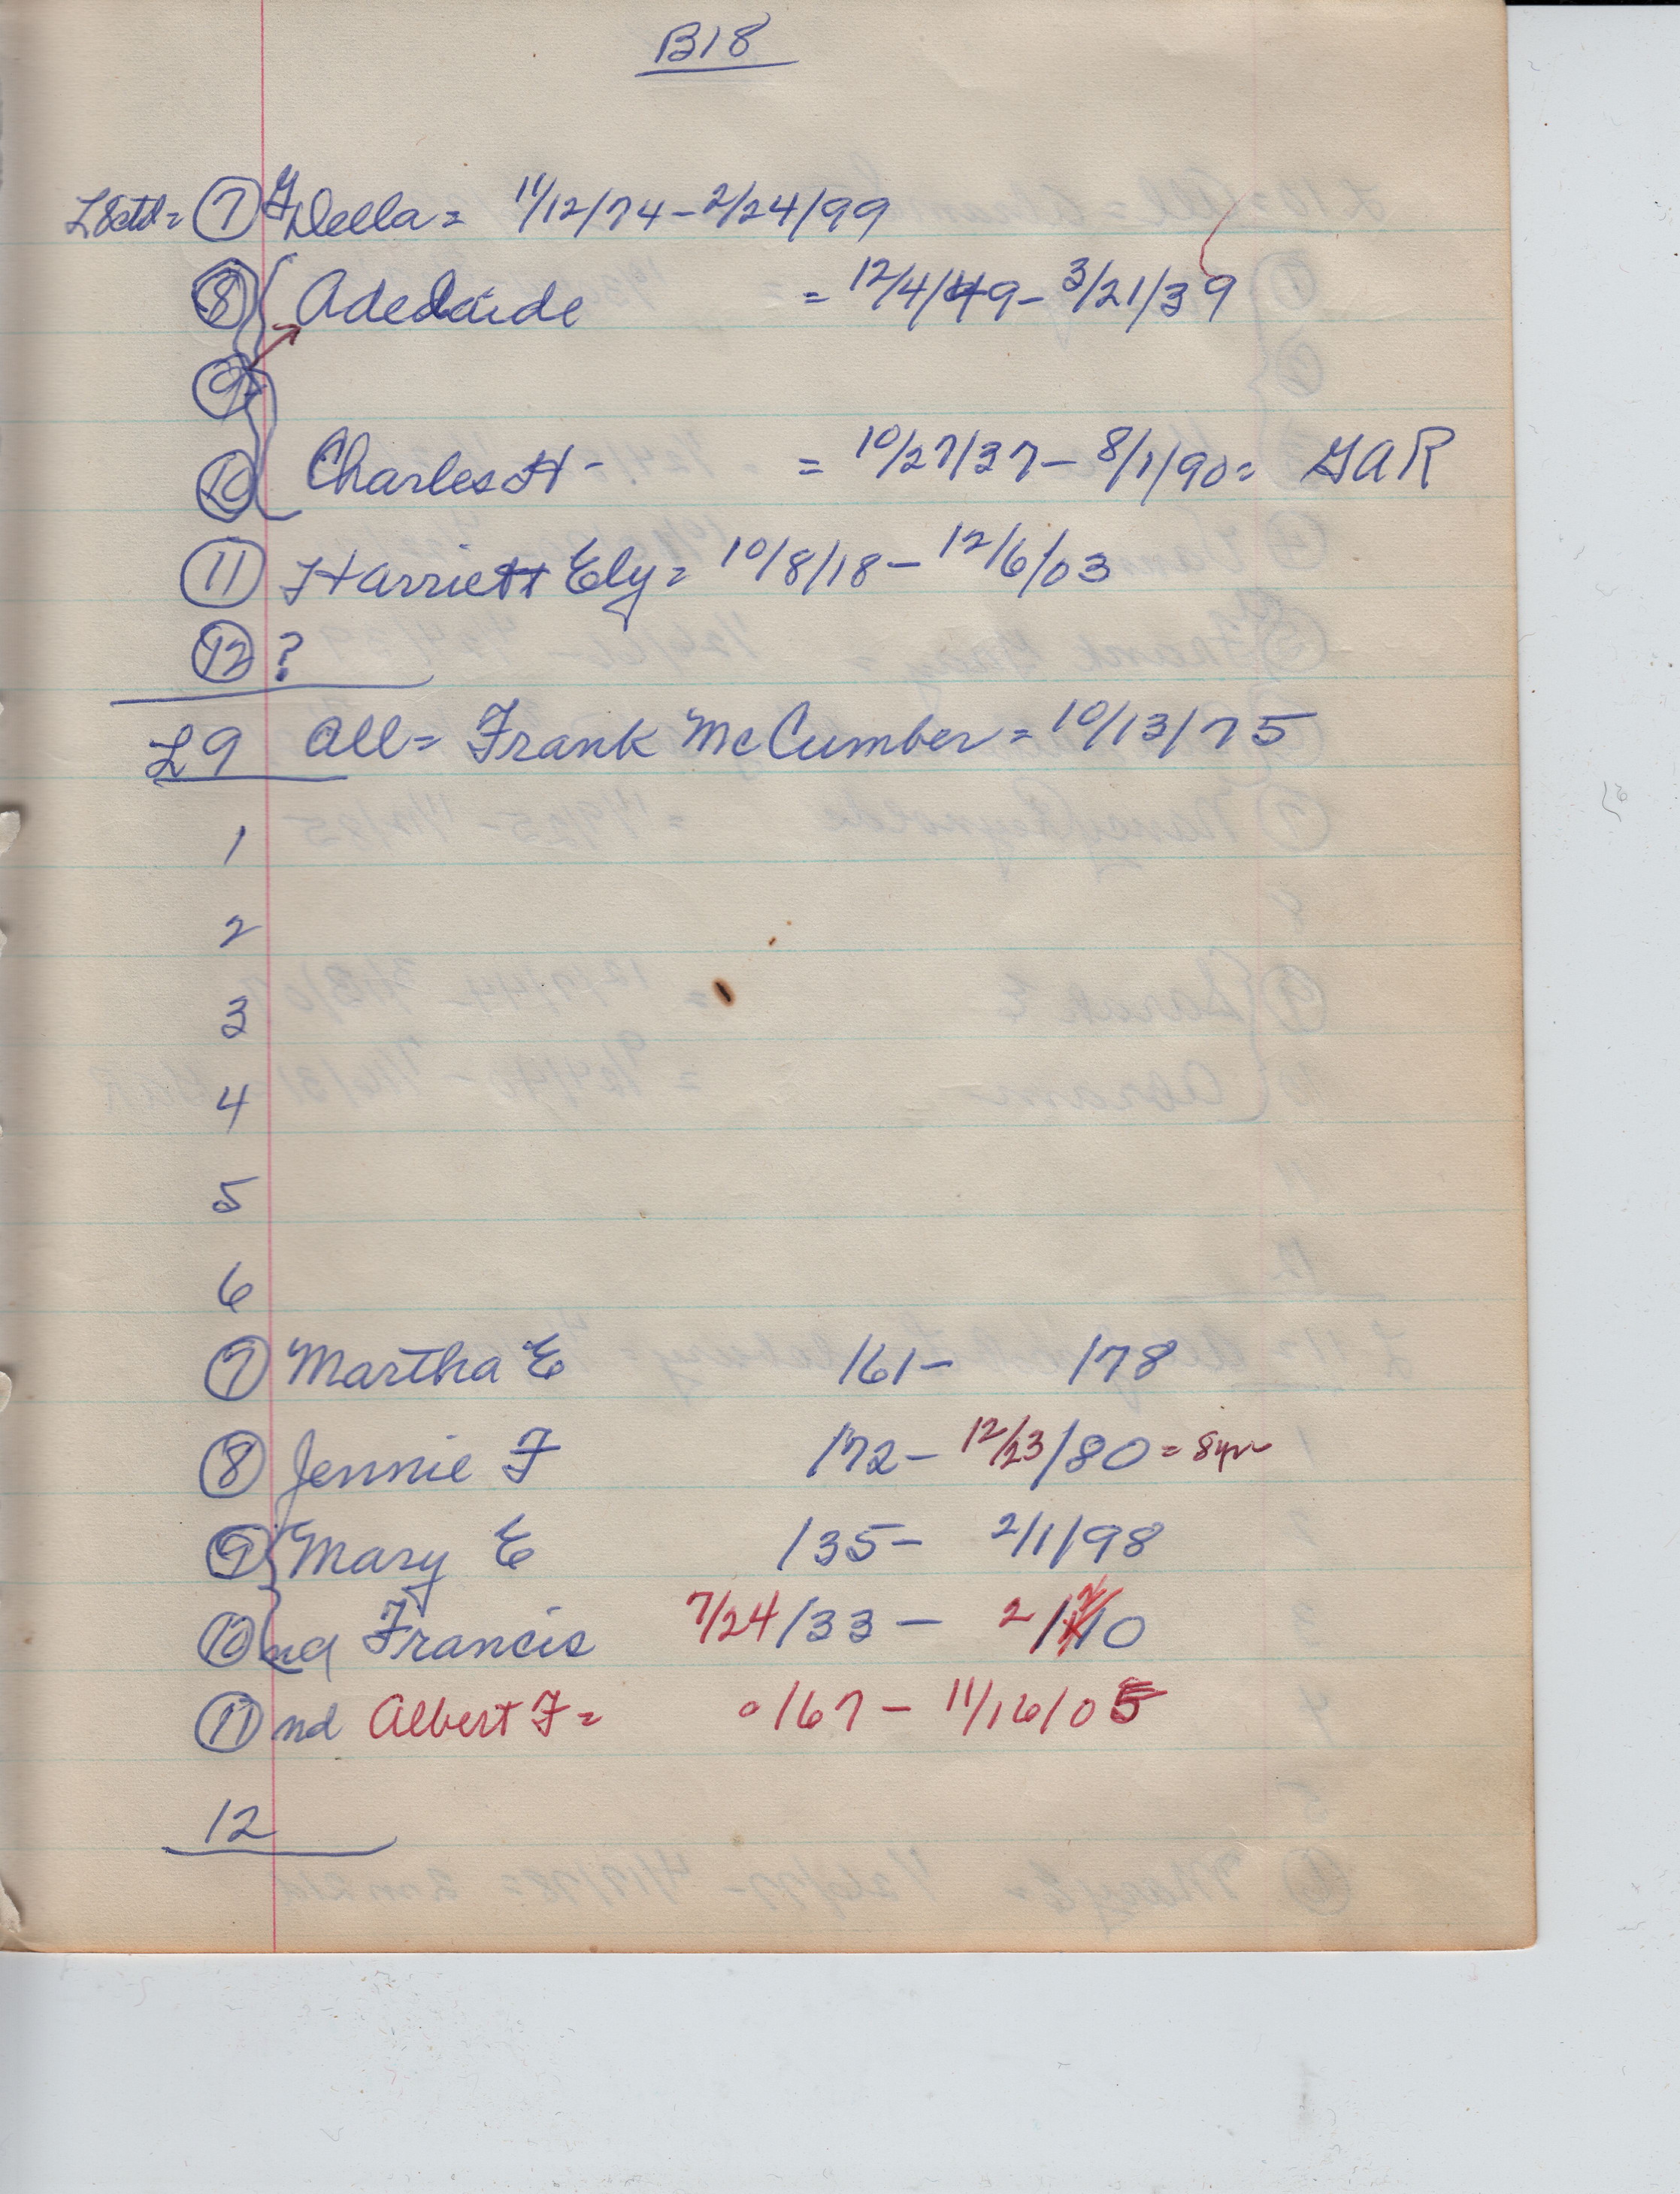 B18
L8ctd = 7 G Della = 11/12/74 - 2/24/99
8 Adelaide = 12/4/49 - 3/21/39
9
10 Charles H - = 10/27/37 - 8/1/90 = GAR
11 Harriett Ely = 10/8/18 - 12/6/03
12 ?
L9 All = Frank McCumber = 10/13/75
1
2
3
4
5
6
7 Martha E /61 - /78
8 Jennie F /72 - 12/23/80 = 8yr
9 Mary E /35 - 2/1/98
10 nd Francis 7/24/33 - 2/ /10
11 nd Albert F = 0/67 - 11/16/05
12